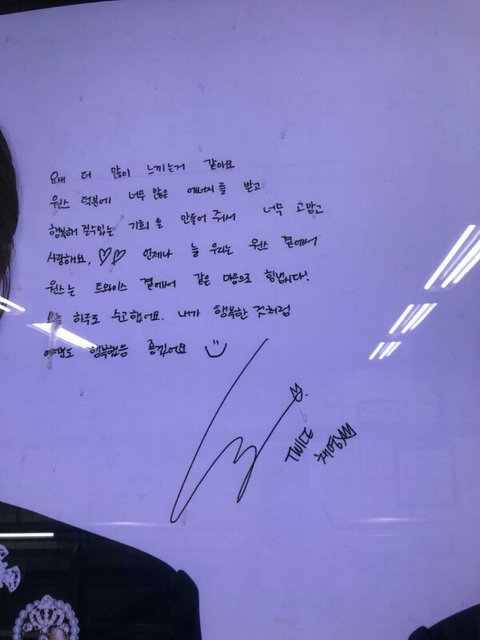 요새 더 많이 느끼는거 같아요
원스 덕분에 너무 많은 에너지를 받고
행복해 질수있는 기회를 만들어 줘서 너무 고맙고
사랑해요. ♡♡ 언제나 늘 우리는 원스 곁에서
원스는 트와이스 곁에서 같은 마음으로 힘냅시다!
오늘 하루도 수고했어요. 내가 행복한 것처럼
행복했음 좋겠어요
TWICE
채영